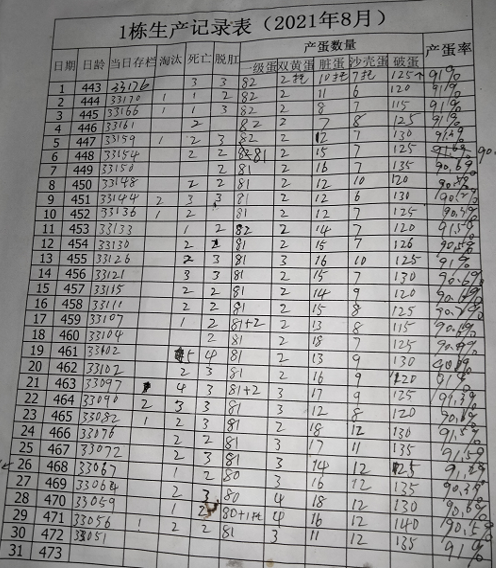 1栋生产记录表（2021年8月）
日期 日龄 当日存栏 淘汰 死亡 脱肛 产蛋数量 产蛋率
一级蛋 双黄蛋 脏蛋 沙壳蛋 破蛋
1 443 33176 3 3 82 2托 10托 7托 125个 91%
2 444 33170 1 1 2 82 2 11 6 120 91%
3 445 33166 1 1 3 82 2 8 7 115 91%
4 446 33161 2 82 2 7 8 125 91%
5 447 33159 1 2 3 82 2 12 7 130
6 448 33154 2 2 81 2 15 7 125
7 449 33150 2 81 2 16 7 135 90.6%
8 450 33148 2 2 81 2 12 10 120
9 451 33144 2 3 3 81 2 12 6 130
10 452 33136 1 2 81 2 12 7 125
11 453 33133 1 2 82 2 14 7 120
12 454 33130 2 81 2 15 7 126
13 455 33126 2 3 81 3 16 10 125 91%
14 456 33121 3 3 81 2 15 7 130
15 457 33115 2 2 81 2 14 9 120
16 458 33111 2 2 81 2 15 8 125
17 459 33107 1 2 81+2 2 13 8 115
18 460 33104 2 81 2 18 7 125
19 461 33102 5 4 81 2 13 9 130
20 462 33102 2 3 81 2 16 9 120 91%
21 463 33097 4 3 81+2 3 17 9 125
22 464 33090 2 3 3 81 3 12 8 120
23 465 33082 1 2 3 81 2 18 12 130
24 466 33076 2 2 81 3 17 11 135
25 467 33072 2 3 81 3 14 12 125
26 468 33067 1 2 80 3 16 12 135
27 469 33064 2 3 80 4 18 12 130
28 470 33059 1 2 80+1托 4 16 12 140
29 471 33056 1 2 2 81 3 11 12 135 91%
30 472 33051
31 473